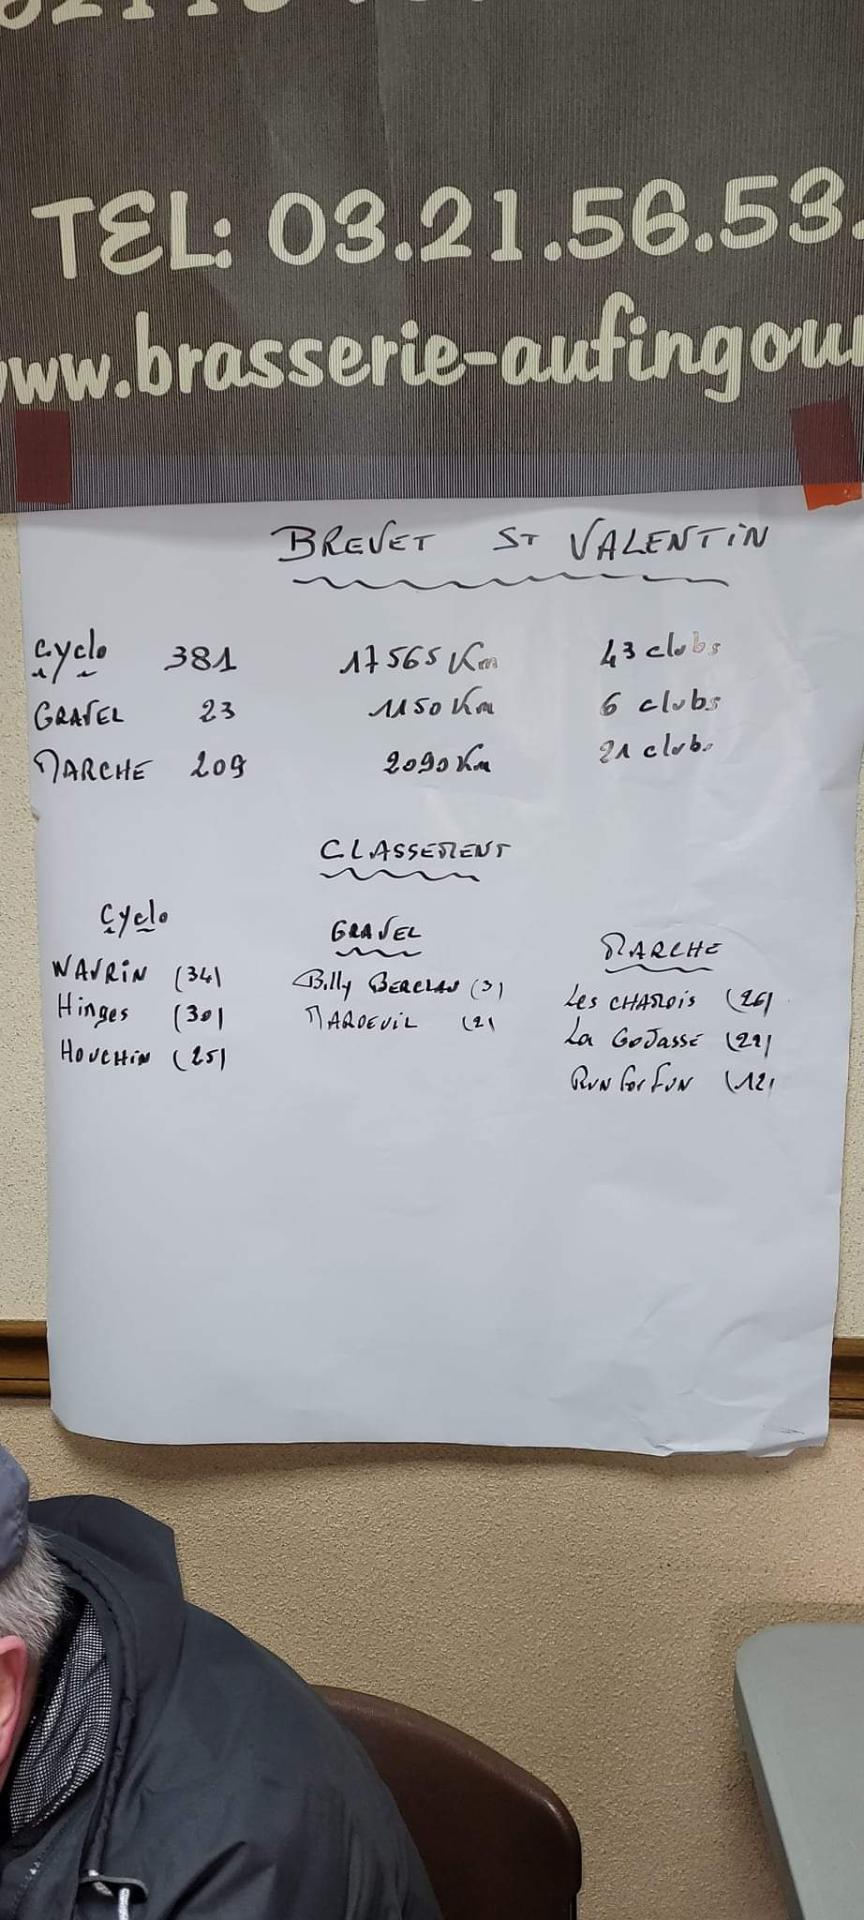 TEL: 03.21.56.53.
www.brasserie-aufingour
BREVET ST VALENTIN
Cyclo 381 17565 Km 43 clubs
GRAVEL 23 1150 Km 6 clubs
MARCHE 209 2090 Km 21 clubs
CLASSEMENT
Cyclo
GRAVEL
MARCHE
WAVRIN (34)
Hinges (30)
HOUCHIN (25)
Billy BERCLAU (3)
MARDEUIL (2)
Les CHAMOIS (26)
La GODASSE (22)
RUN for FUN (12)